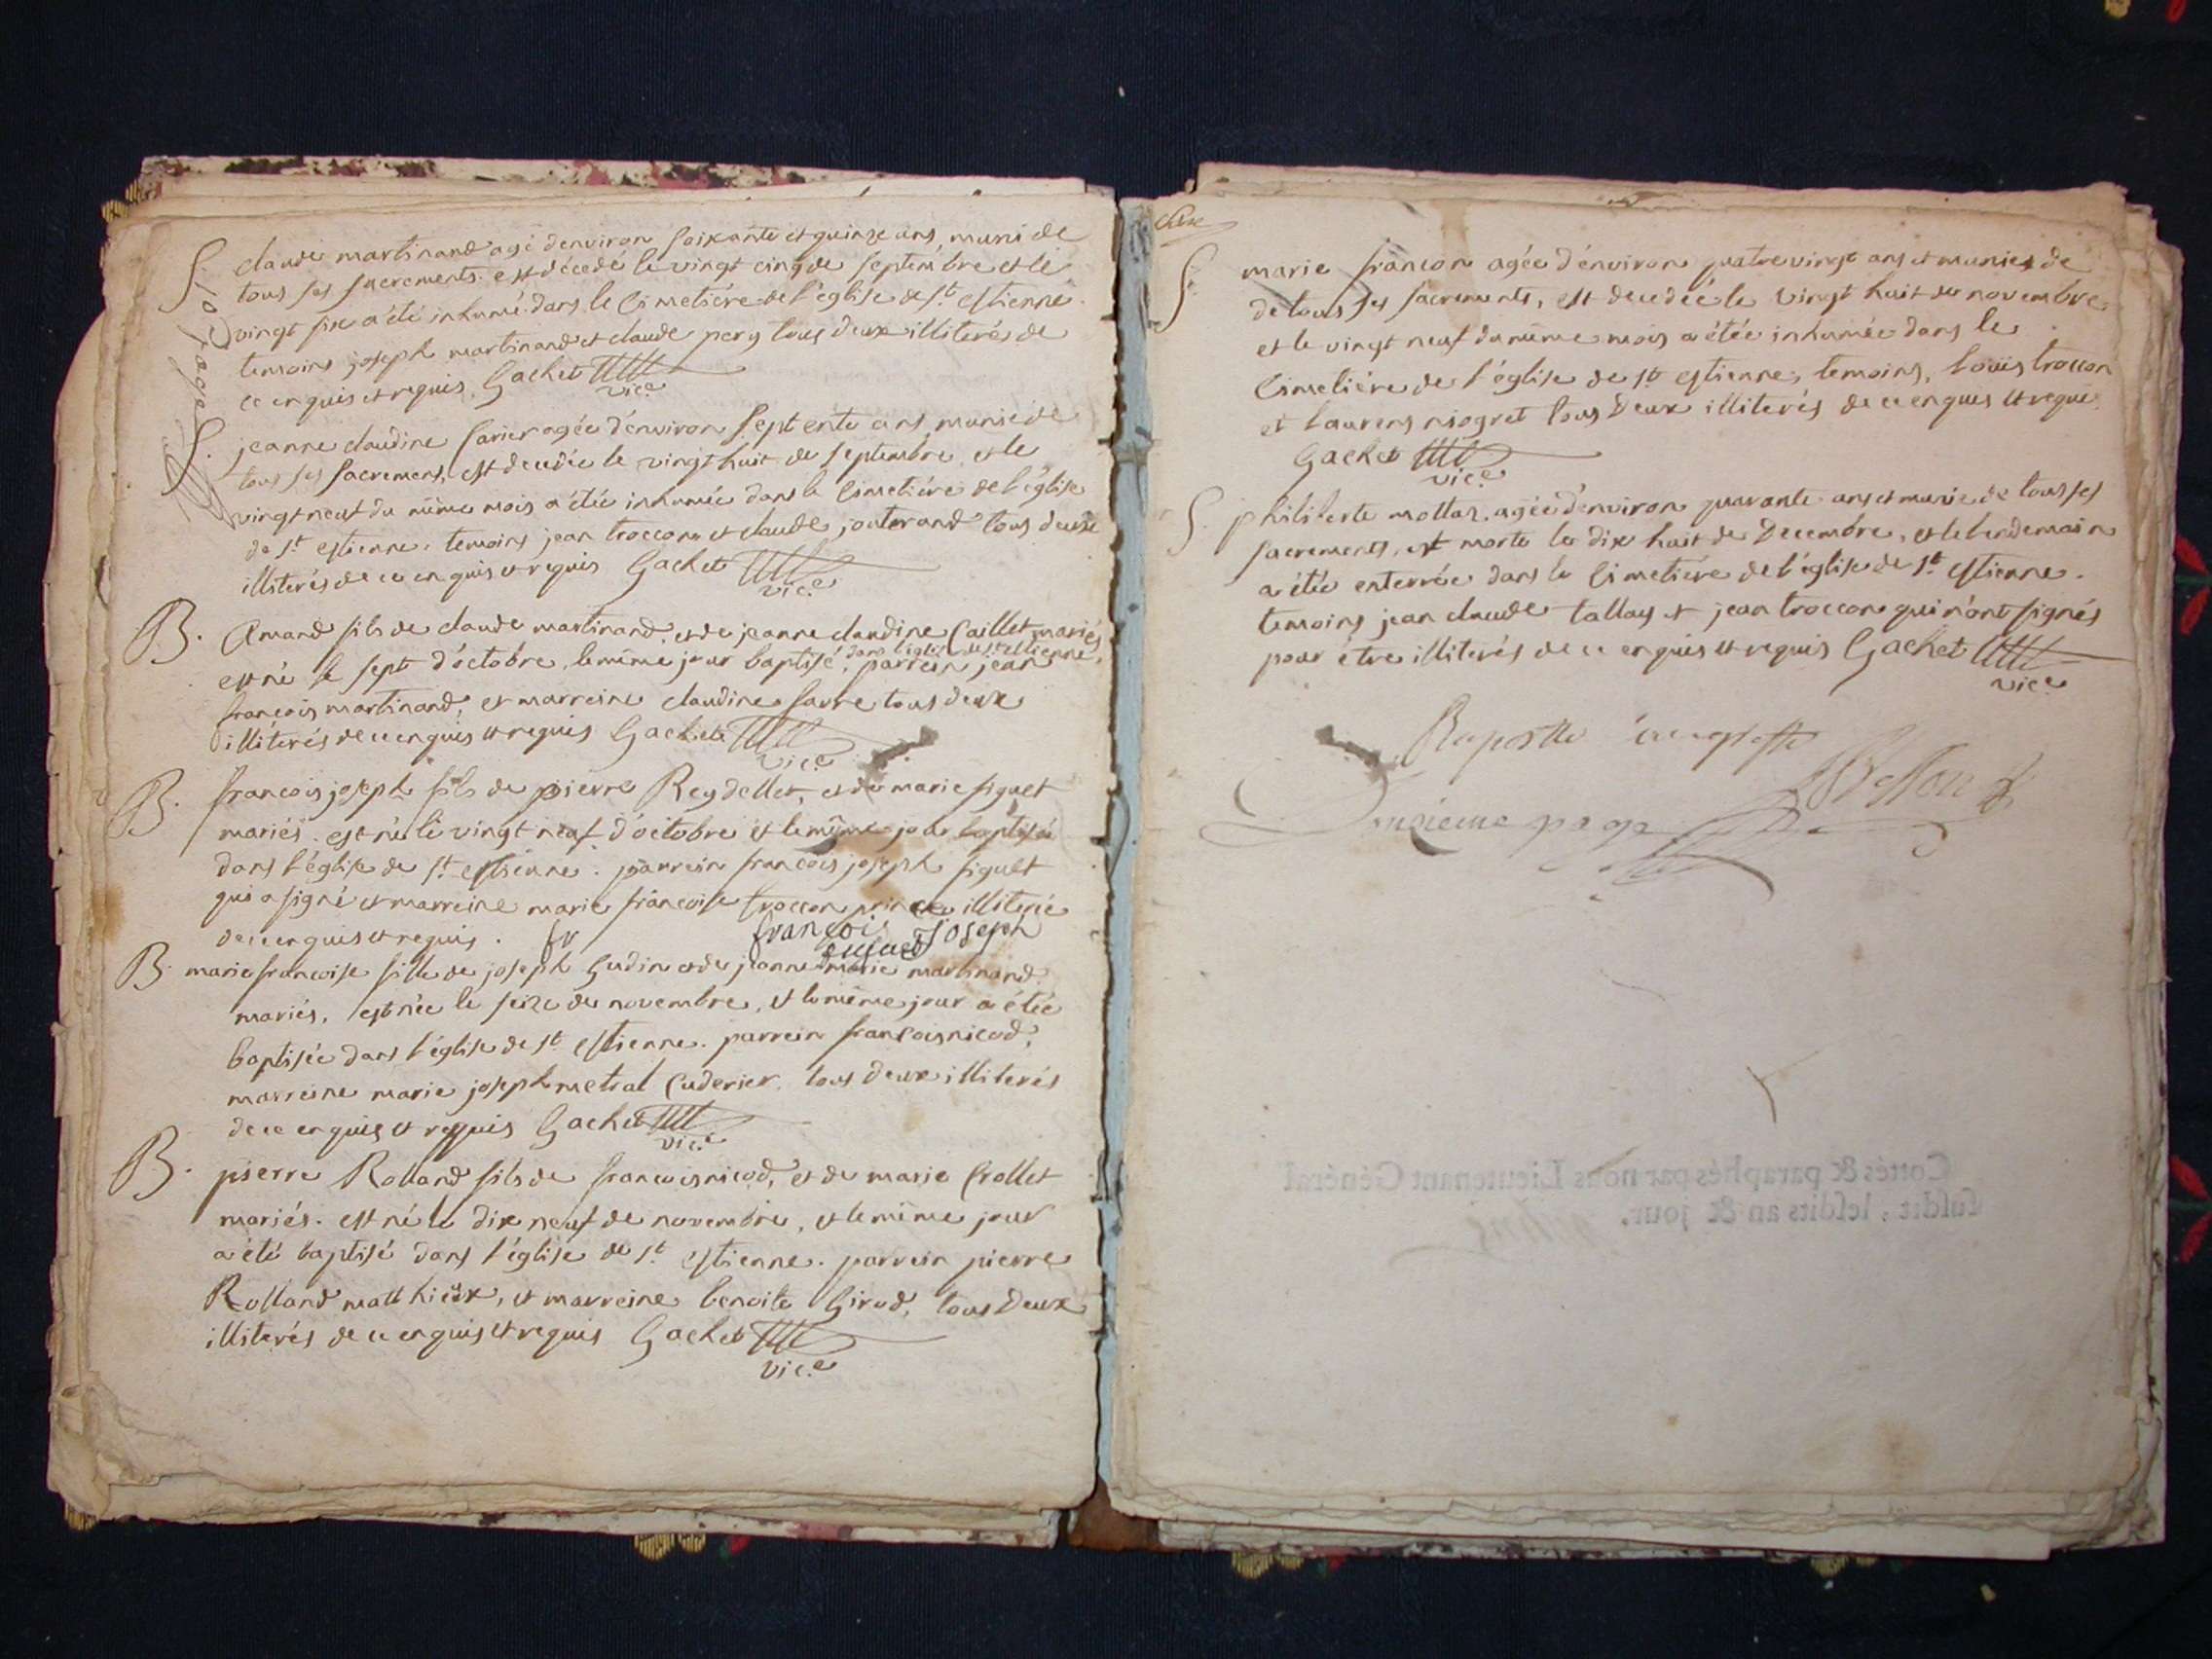 S. claude martinand agé d'environ soixante et quinze ans, muni de
tous ses sacrements est décedé le vingt cinq de septembre et le
vingt six a été inhumé dans le Cimetiére de l'église de st estienne
temoins joseph martinand et claude pery tous deux illiterés de
ce enquis et requis. Gachet
vic.e
page
S. jeanne claudine agée d'environ septente ans, munie de
tous ses sacremens, est decedée le vingt huit de septembre et le
vingt neuf du même mois a étée inhumée dans le Cimetiére de l'église
de st estienne. temoins jean troccon et claude jouterand tous deux
illiterés de ce enquis et requis Gachet
vic.e
B. Amand fils de claude martinand et de jeanne claudine Caillet mariés
dans l'église de st estienne
est né le sept d'octobre, le même jour baptisé, parrein jean
françois martinand, et marreine claudine favre tous deux
illiterés de ce enquis et requis Gachet
vic.e
B. françois joseph fils de pierre Reydellet, et de marie figuet
mariés. est né le vingt neuf d'octobre et le même jour baptisé
dans l'église de st estienne. parrein françois joseph figuet
qui a signé et marreine marie françoise troccon illiterée
de ce enquis et requis. fr françois joseph
B. marie françoise fille de joseph Gudin et de jeanne marie martinand
mariés, est née le seize de novembre, et le même jour a étée
baptisée dans l'église de st estienne. parrein françois nicod,
marreine marie joseph metral Cuderier. tous deux illiterés
de ce enquis et requis Gachet
vic.e
B. pierre Rolland fils de françois nicod, et de marie Crollet
mariés. est né le dix neuf de novembre, et le même jour
a été baptisé dans l'église de st estienne. parrein pierre
Rolland matthieux, et marreine benoite Girod, tous deux
illiterés de ce enquis et requis Gachet
vic.e
S. marie françon agée d'environ quatre vingt ans et munie de
de tous ses sacrements, est decedée le vingt huit de novembre
et le vingt neuf du même mois a étée inhumée dans le
Cimetiére de l'église de st estienne, temoins, louis troccon
et laurens niogret tous deux illiterés de ce enquis et requis
Gachet
vic.e
S. philiberte mottaz agée d'environ quarante ans et munie de tous ses
sacrements, est morte le dix huit de Decembre, et le lendemain
a étée enterrée dans le Cimetiére de l'église de st estienne.
temoins jean claude tallay et jean troccon qui n'ont signés
pour être illiterés de ce enquis et requis Gachet
vic.e
onzieme page
Cottés & paraphés par nous Lieutenant Général
susdit, lesdits an & jour.